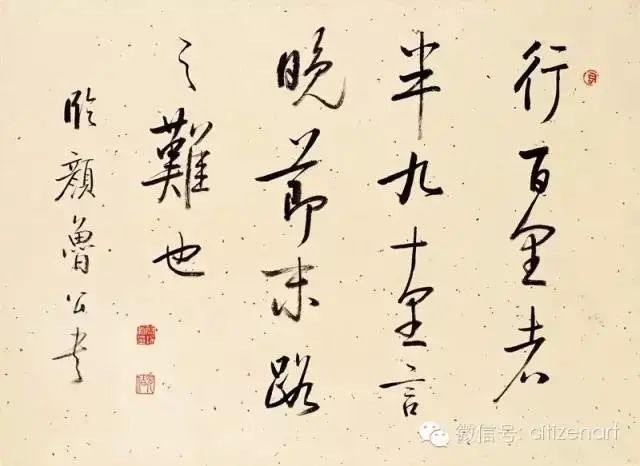 行百里者
半九十里言
晚节末路
之難也
临颜魯公书
微信号: citizenart